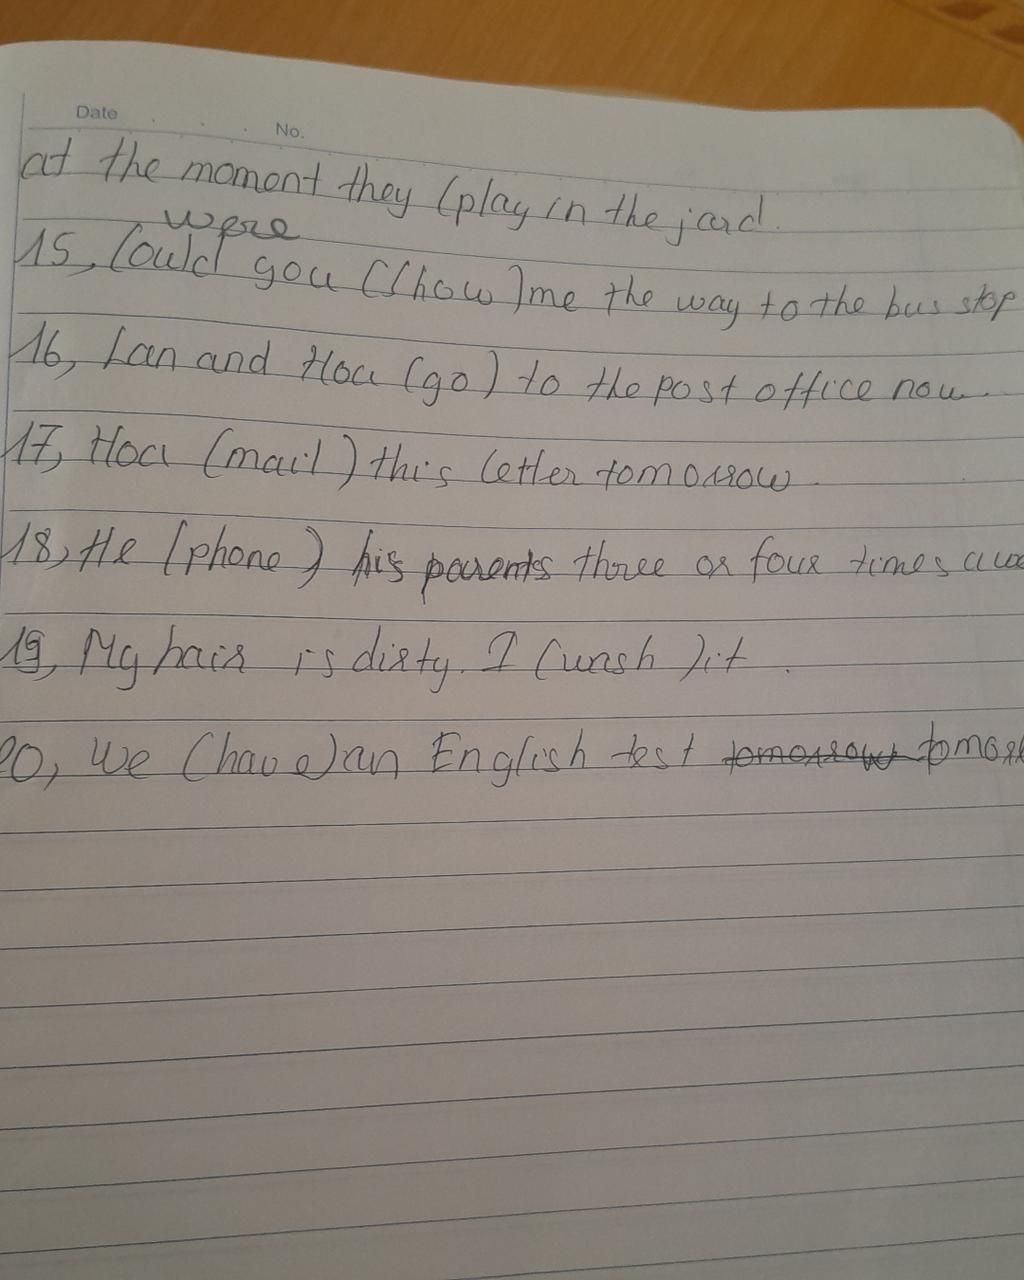 Date No.
at the moment they (play in the jard.
were
15, Could you (Show) me the way to the bus stop
16, Lan and Hoa (go) to the post office now.
17, Hoa (mail) this letter tomorrow.
18, He (phone) his parents three or four times
19, My hair is dirty. I (wash) it.
20, We (have) an English test tomorrow